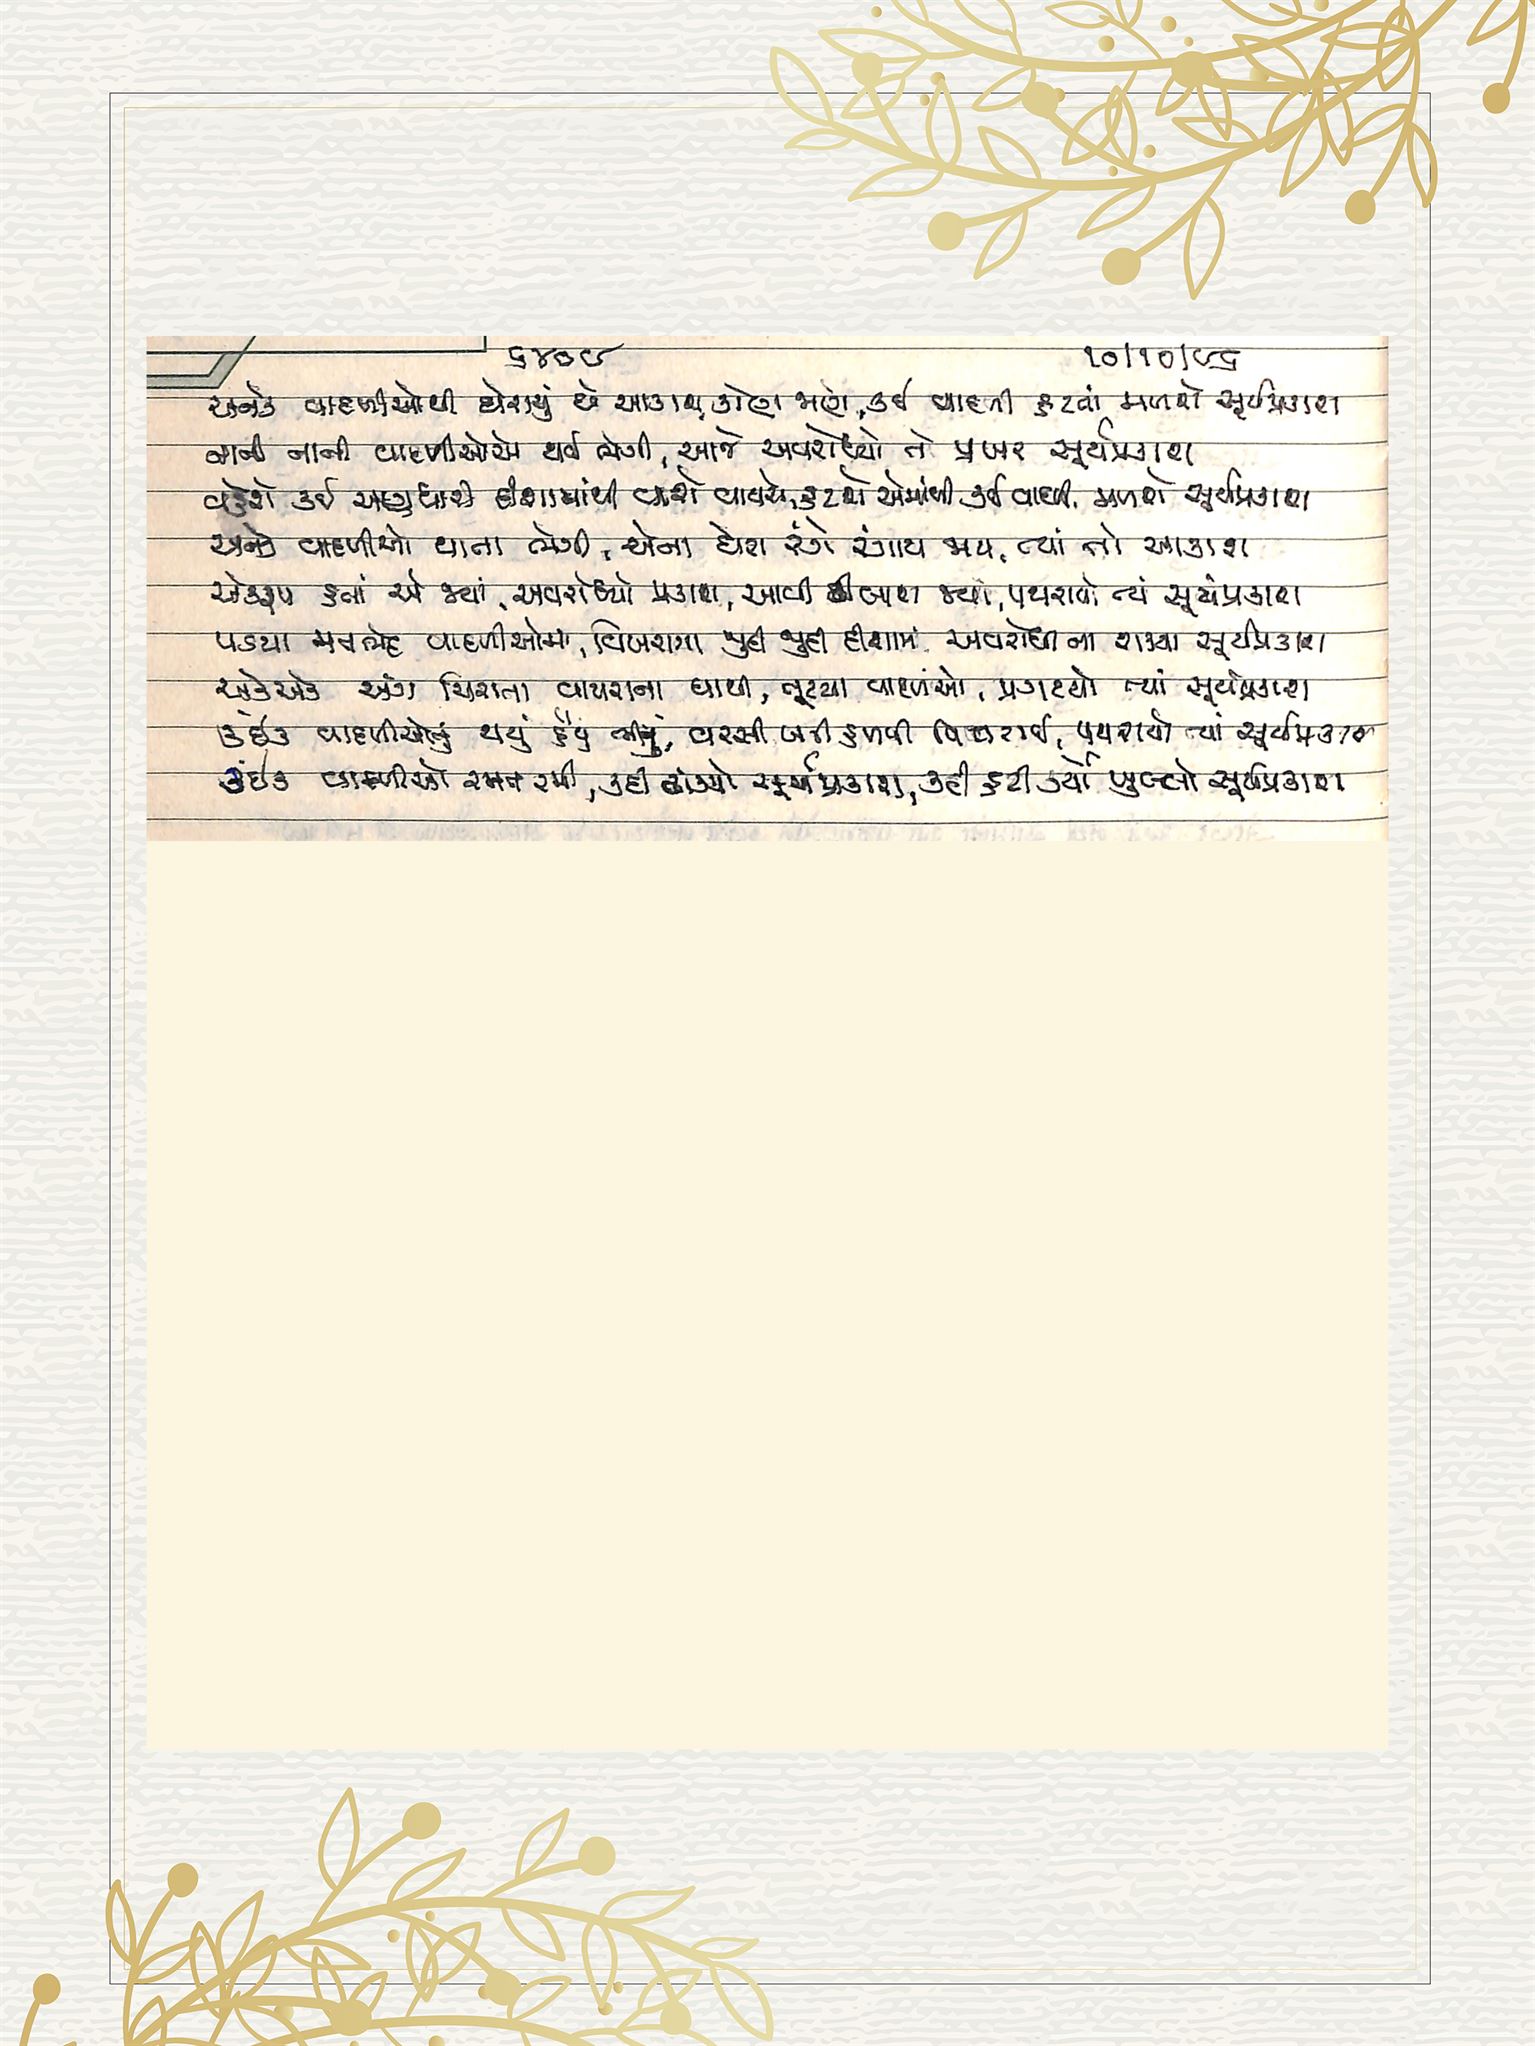 ૬૪૦૯ ૧૦/૧૦/૯૬
અનેક વાદળીઓથી ઘેરાયું છે આકાશ, કોણ જાણે, કઈ વાદળી હટતાં મળશે સૂર્યપ્રકાશ
નાની નાની વાદળીઓએ થઈ ભેગી, આજે અવરોધ્યો તો પ્રખર સૂર્યપ્રકાશ
કઈ અણધારી દીશામાંથી વાશે વાયરો, હટશે એમાંથી કઈ વાદળી, મળશે સૂર્યપ્રકાશ
અનેક વાદળીઓ થાતા ભેગી, એના ઘેરા રંગે રંગાય જાય, ત્યાં તો આકાશ
એકરૂપ બનતાં એ જ્યાં, અવરોધ્યો પ્રકાશ, આવી જ્યાં, પથરાયો ત્યાં સૂર્યપ્રકાશ
પડયા મનભેદ વાદળીઓમાં, વિખરાયા જુદી જુદી દીશામાં અવરોધી ના શક્યા સૂર્યપ્રકાશ
એકેએક અંગ ચિરાતા વાયરાના ઘાથી, તૂટયા વાદળીઓ, પ્રગટયો ત્યાં સૂર્યપ્રકાશ
કંઈક વાદળીઓનું થયું હૈયું ભીનું, વરસી બની હળવી વિખરાઈ, પથરાયો ત્યાં સૂર્યપ્રકાશ
કંઈક વાદળીઓ રમત રમી, કદી રોક્યો સૂર્યપ્રકાશ, કદી હટી કર્યો ખુલ્લો સૂર્યપ્રકાશ